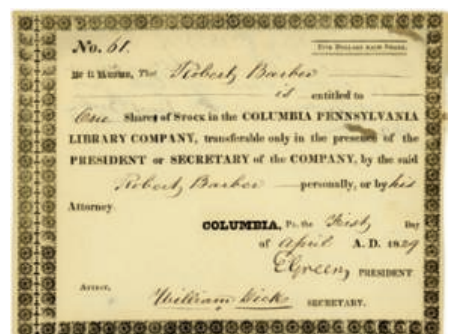 No. 61.
Five Dollars each Share.
Be it Known, That Robert Barber
is entitled to
One Shares of Stock in the COLUMBIA PENNSYLVANIA
LIBRARY COMPANY, transferable only in the presence of the
PRESIDENT or SECRETARY of the COMPANY, by the said
Robert Barber personally, or by his
Attorney.
COLUMBIA, Pa. the First Day
of April A. D. 1829
PRESIDENT
Attest,
William SECRETARY.